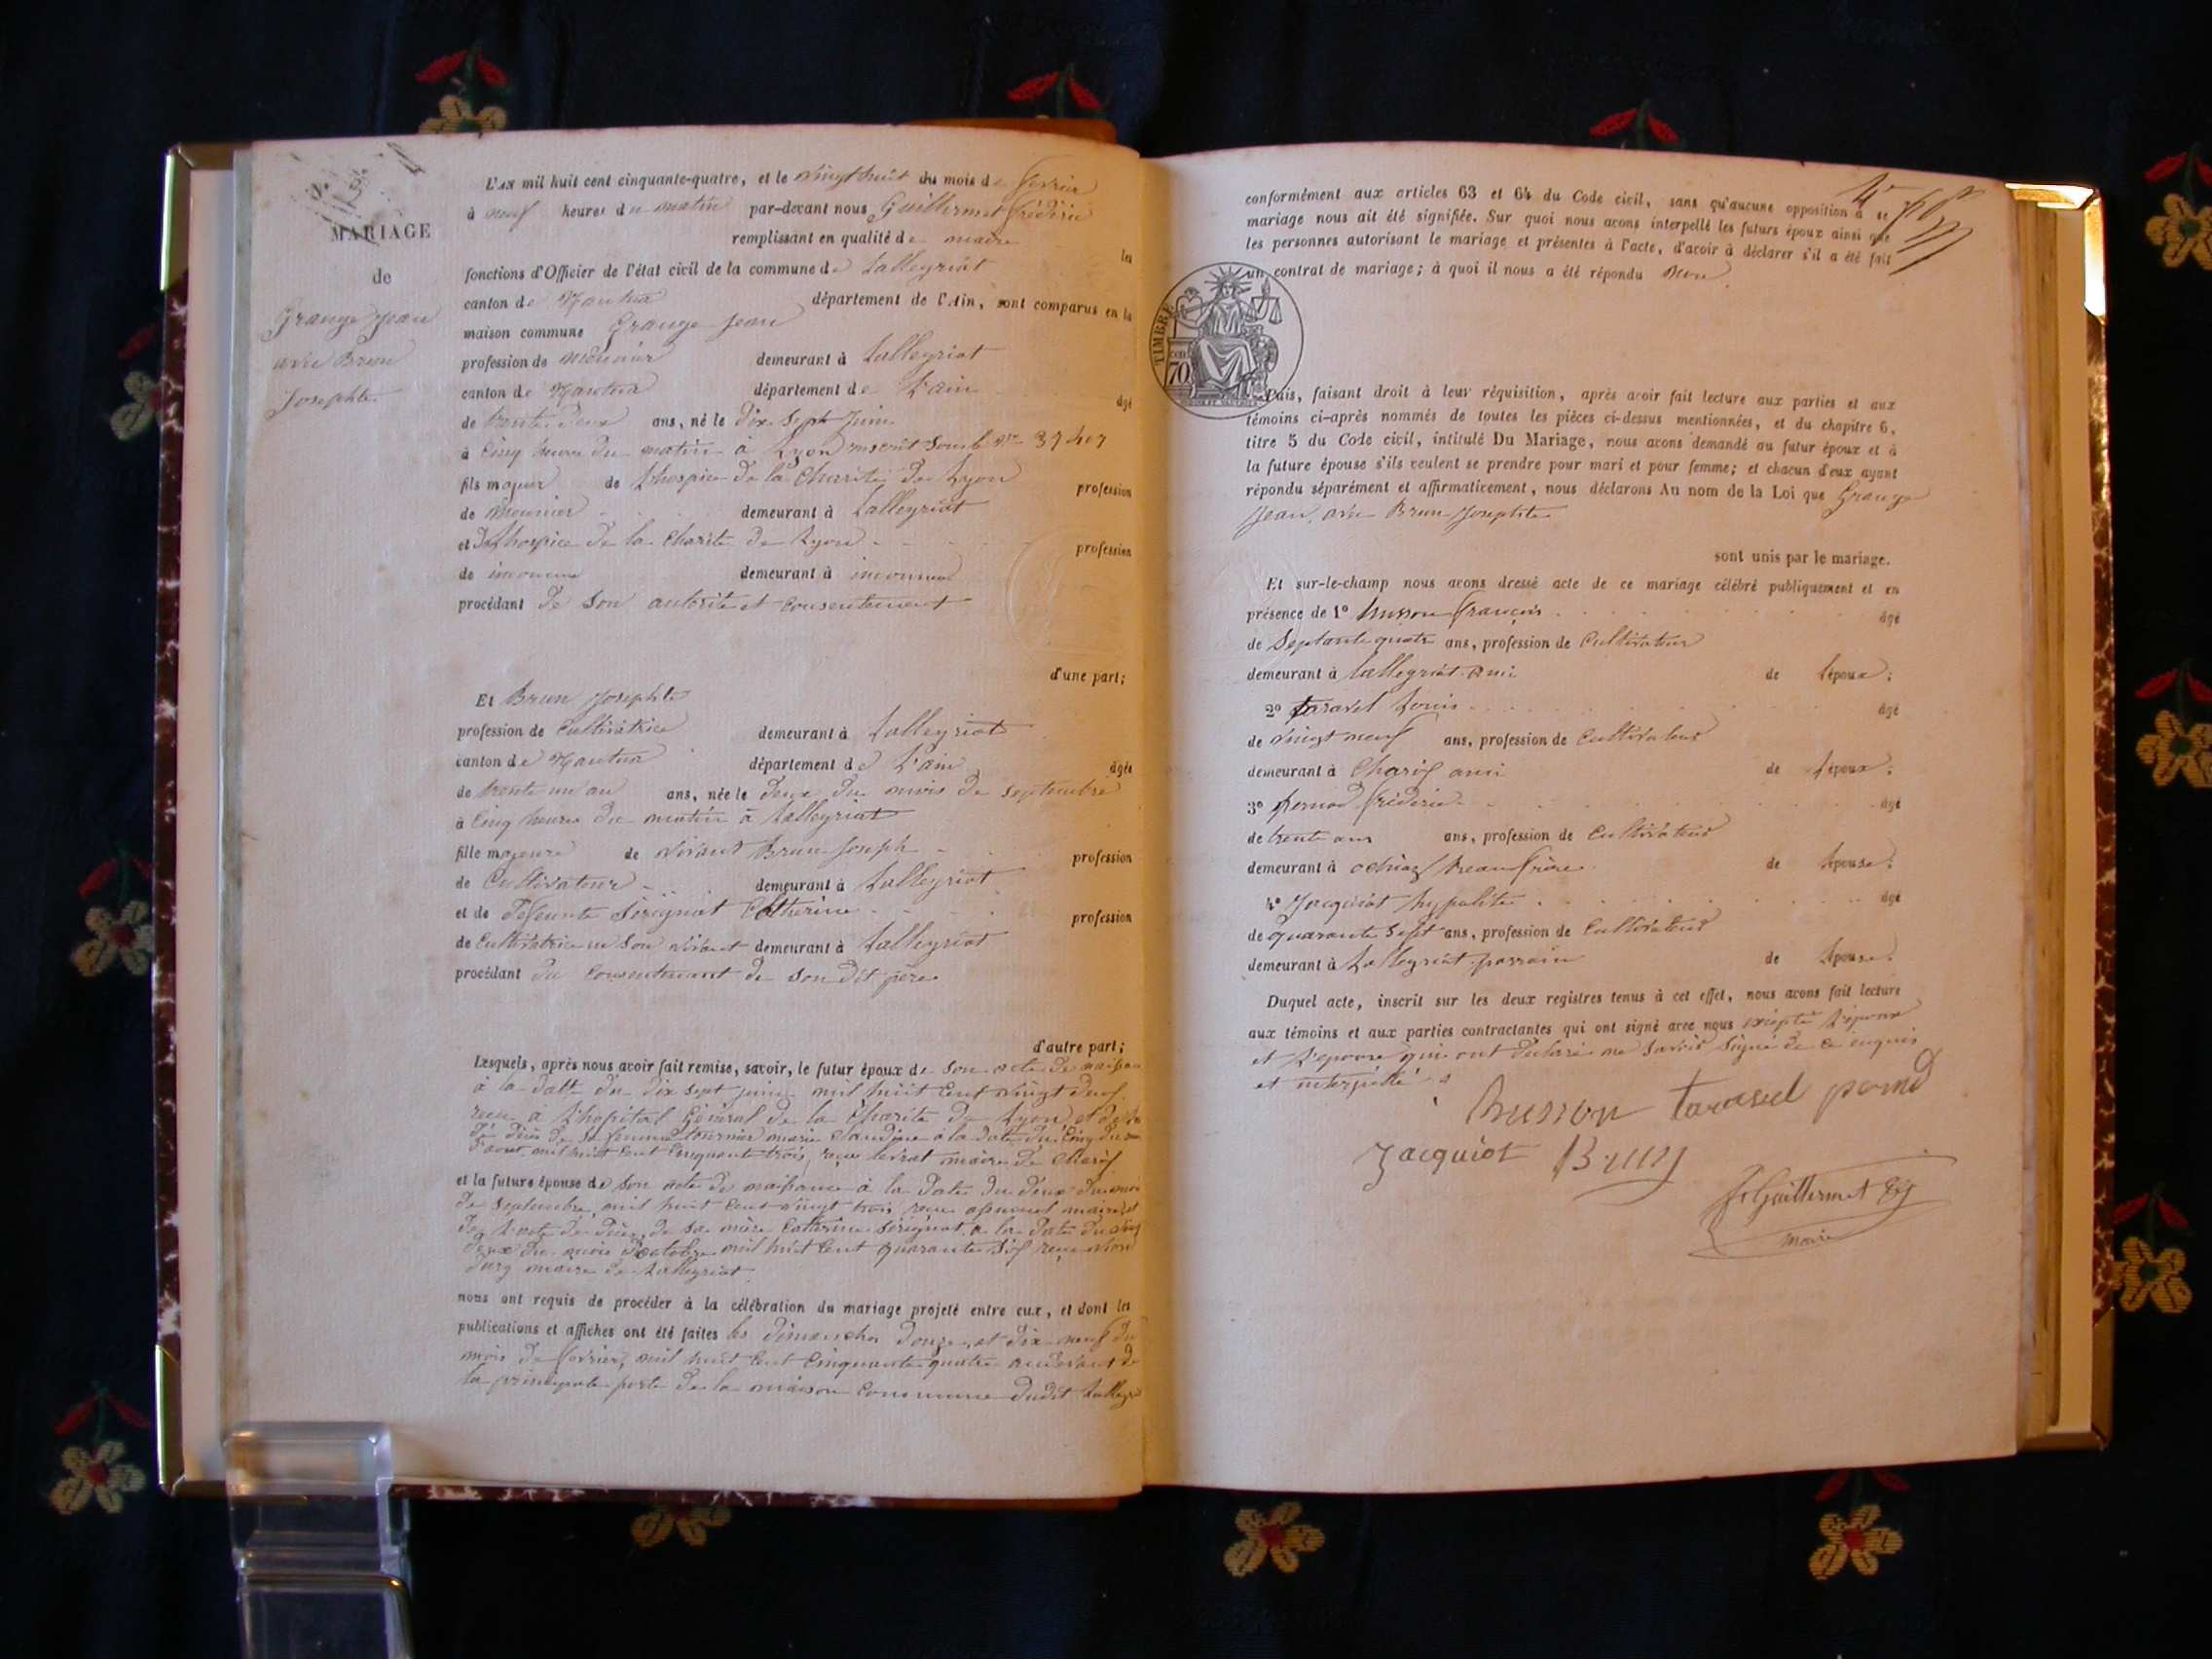 MARIAGE
de
Grange Jean
avec Brun
Josephte
L'AN mil huit cent cinquante-quatre, et le vingt huit du mois de fevrier
à neuf heures du matin par-devant nous Guillermet fréderic
remplissant en qualité de maire les
fonctions d'Officier de l'état civil de la commune de Lalleyriat
canton de Nantua département de l'Ain, sont comparus en la
maison commune Grange Jean
profession de meunier demeurant à Lalleyriat
canton de Nantua département de L'ain âgé
de trente deux ans, né le dix sept Juin
à cinq heures du matin à Lyon inscrit sous le n° 37407
fils majeur de L'hospice de la Charité de Lyon profession
de meunier demeurant à Lalleyriat
et de L'hospice de la Charité de Lyon profession
de inconnue demeurant à inconnue
procédant de son autorité et consentement
d'une part;
Et Brun Josephte
profession de Cultivatrice demeurant à Lalleyriat
canton de Nantua département de L'ain âgée
de trente un an ans, née le deux du mois de septembre
à cinq heures du matin à Lalleyriat
fille majeure de vivant Brun Joseph profession
de Cultivateur demeurant à Lalleyriat
et de défeunte Sérignat Catherine profession
de Cultivatrice en son vivant demeurant à Lalleyriat
procédant du consentement de son dit père
d'autre part;
Lesquels, après nous avoir fait remise, savoir, le futur époux de son acte de naissance
à la datte du dix sept juin mil huit cent vingt deux
recu a L'hopital Général de la Charité de Lyon et de
de décès de sa femme tournier marie claudine à la date du cinq du
d'aout mil huit cent cinquante trois, reçu maire de Charix
et la future épouse de son acte de naissance à la date du deux du mois
de septembre mil huit cent vingt trois reçu maire et
de L'acte de décès de sa mère Catherine Sérignat a la date du vingt
deux du mois d'octobre mil huit cent quarante six reçu
maire de Lalleyriat
nous ont requis de procéder à la célébration du mariage projeté entre eux, et dont les
publications et affiches ont été faites les dimanches douze et dix neuf du
mois de fevrier mil huit cent cinquante quatre audevant de
la principale porte de la maison commune dudit Lalleyriat
conformément aux articles 63 et 64 du Code civil, sans qu'aucune opposition à ce
mariage nous ait été signifiée. Sur quoi nous avons interpellé les futurs époux ainsi que
les personnes autorisant le mariage et présentes à l'acte, d'avoir à déclarer s'il a été fait
un contrat de mariage; à quoi il nous a été répondu Non
TIMBRE
70
Puis, faisant droit à leur réquisition, après avoir fait lecture aux parties et aux
témoins ci-après nommés de toutes les pièces ci-dessus mentionnées, et du chapitre 6,
titre 5 du Code civil, intitulé Du Mariage, nous avons demandé au futur époux et à
la future épouse s'ils veulent se prendre pour mari et pour femme; et chacun d'eux ayant
répondu séparément et affirmativement, nous déclarons Au nom de la Loi que Grange
Jean avec Brun Josephte
sont unis par le mariage.
Et sur-le-champ nous avons dressé acte de ce mariage célébré publiquement et en
présence de 1° husson françois âgé
de Septante quatre ans, profession de Cultivateur
demeurant à Lalleyriat ami de l'époux;
2° taravel Louis âgé
de vingt neuf ans, profession de Cultivateur
demeurant à Charix ami de l'époux;
3° pernod fréderic âgé
de trente ans ans, profession de Cultivateur
demeurant à ochiaz beau frère de L'épouse;
4° Jacquiot hypolite âgé
de quarante sept ans, profession de Cultivateur
demeurant à Lalleyriat parrain de L'épouse.
Duquel acte, inscrit sur les deux registres tenus à cet effet, nous avons fait lecture
aux témoins et aux parties contractantes qui ont signé avec nous excepté L'époux
et L'epouse qui ont déclaré ne savoir signé de ce enquis
et interpellé
husson taravel pernod
Jacquiot Brun
fc Guillermet
maire